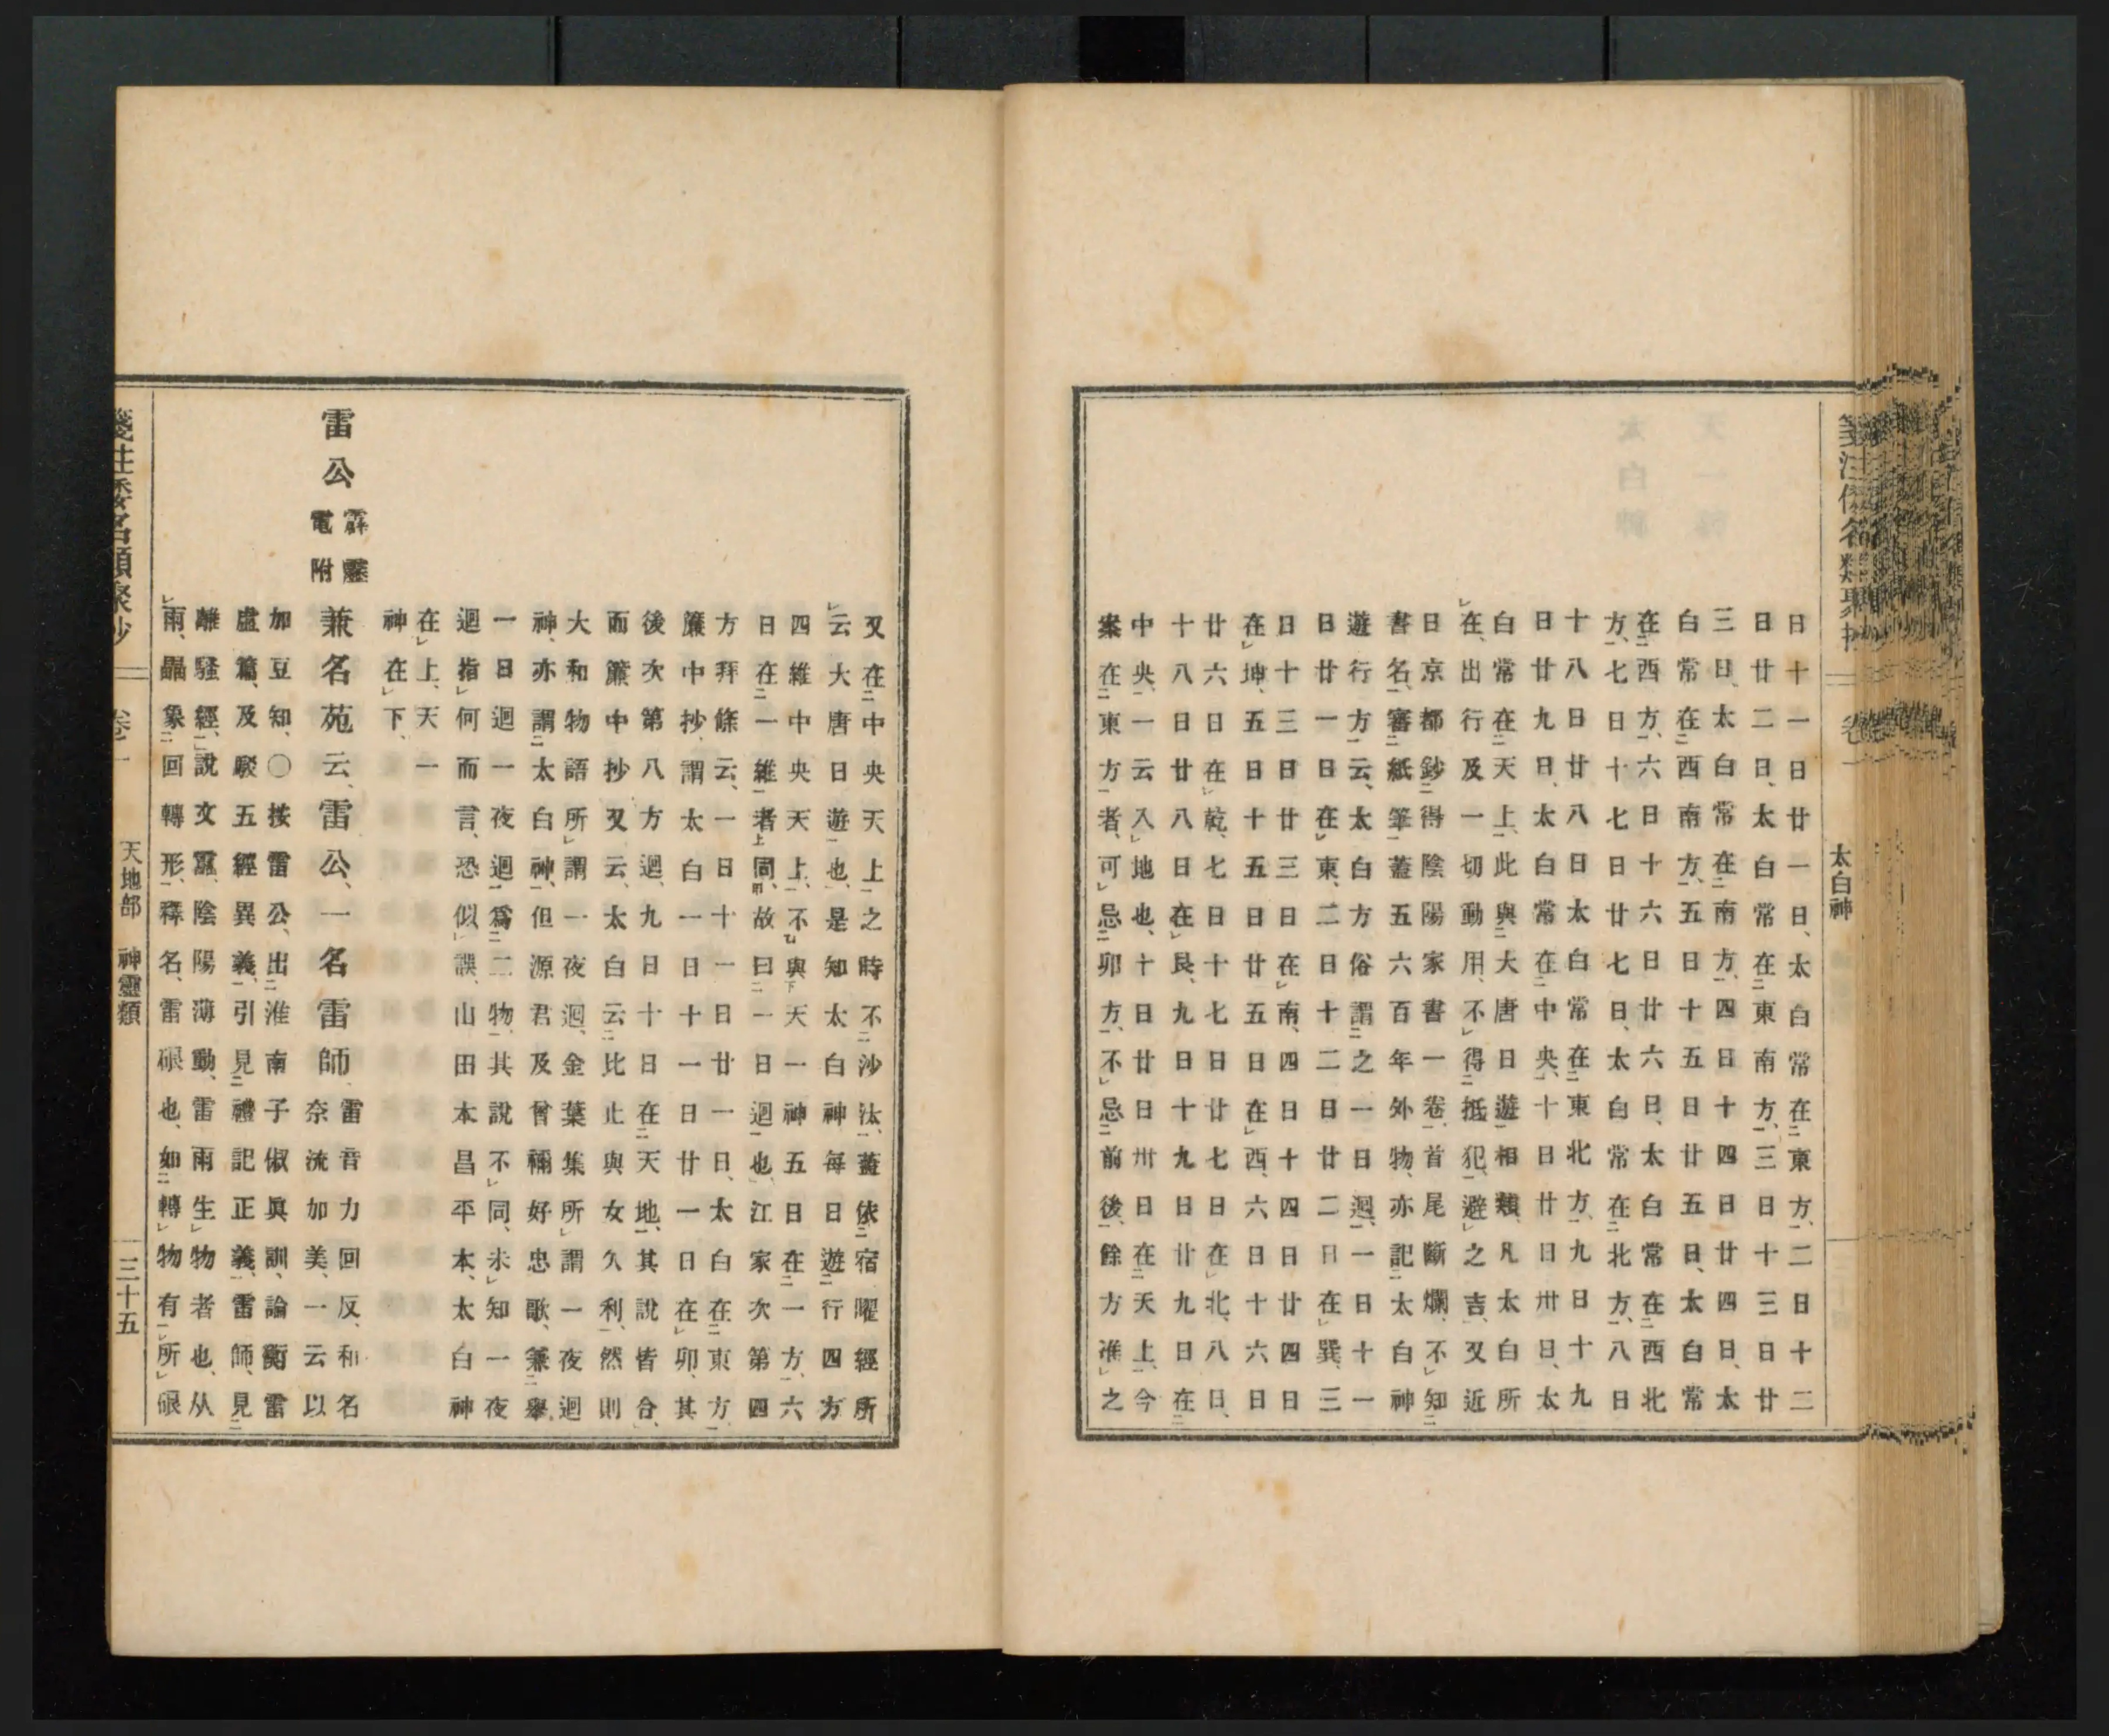 箋注倭名類聚抄 卷一 太白神
日十一日廿一日、太白常在東方、二日十二
日廿二日、太白常在東南方、三日十三日廿
三日、太白常在南方、四日十四日廿四日、太
白常在西南方、五日十五日廿五日、太白常
在西方、六日十六日廿六日、太白常在西北
方、七日十七日廿七日、太白常在北方、八日
十八日廿八日太白常在東北方、九日十九
日廿九日、太白常在中央、十日廿日卅日、太
白常在天上、此與大唐日遊相類、凡太白所
在、出行及一切動用、不得抵犯、避之吉、又近
日京都鈔得陰陽家書一卷、首尾斷爛、不知
書名、審紙筆蓋五六百年外物、亦記太白神
遊行方云、太白方俗謂之一日迴、一日十一
日廿一日在東、二日十二日廿二日在巽、三
日十三日廿三日在南、四日十四日廿四日
在坤、五日十五日廿五日在西、六日十六日
廿六日在乾、七日十七日廿七日在北、八日、
十八日廿八日在艮、九日十九日廿九日在
中央、一云入地也、十日廿日卅日在天上、今
案在東方者、可忌卯方、不忌前後、餘方准之
又在中央天上之時不沙汰、蓋依宿曜經所
云大唐日遊也、是知太白神每日遊行四方
四維中央天上、不與天一神五日在一方、六
日在一維者同、故曰一日迴也、江家次第四
方拜條云、一日十一日廿一日、太白在東方、
簾中抄、謂太白一日十一日廿一日在卯、其
後次第八方迴、九日十日在天地、其說皆合、
而簾中抄又云、太白云比止與女久利、然則
大和物語所謂一夜迴、金葉集所謂一夜迴
神、亦謂太白神、但源君及曾禰好忠歌、兼舉
一日迴一夜迴爲二物、其說不同、未知一夜
迴指何而言、恐似誤、山田本昌平本、太白神
在上、天一
神在下、
雷公 霹靂電附 兼名苑云、雷公、一名雷師、雷音力回反、和名
奈流加美、一云以
加豆知、〇按雷公、出淮南子俶眞訓、論衡雷
虛篇、及駁五經異義、引見禮記正義、雷師、見
離騷經、說文靁、陰陽薄動、雷雨生物者也、从
雨、畾象回轉形、釋名、雷硍也、如轉物有所硍
箋注倭名類聚抄 卷一 天地部 神靈類 三十五